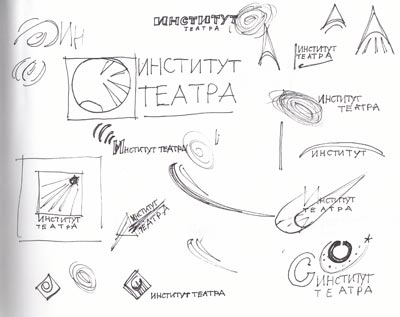 ИНСТИТУТ
ТЕАТРА
ИН
ИНСТИТУТ
ТЕАТРА
ИНСТИТУТ
ТЕАТРА
ИНСТИТУТ
ТЕАТРА
ИНСТИТУТ ТЕАТРА
ИНСТИТУТ
ИНСТИТУТ
ТЕАТРА
ИНСТИТУТ
ТЕАТРА
ИНСТИТУТ
ТЕАТРА
ИНСТИТУТ
ТЕАТРА
ИНСТИТУТ ТЕАТРА